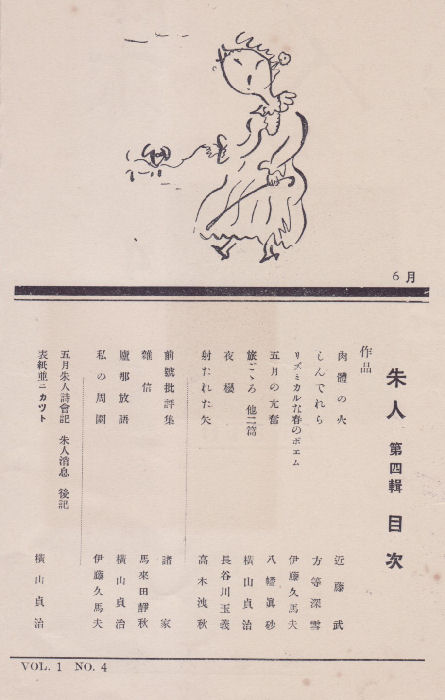 6月
朱人 第四輯 目次
作品
肉體の火 近藤武
しんでれら 方等深雪
リズミカルな春のポエム 伊藤久馬夫
五月の亢奮 八幡眞砂
旅ごころ 他二篇 橫山貞治
夜櫻 長谷川玉義
射たれた矢 高木洩秋
前號批評集 諸家
雜信 馬來田靜秋
廬那放語 橫山貞治
私の周圍 伊藤久馬夫
五月朱人詩會記 朱人消息 後記
表紙並ニカツト 橫山貞治
VOL. 1 NO. 4